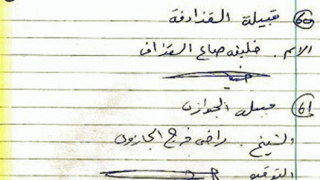 60 قبيلة القذاذفة
الاسم. خليفه صالح القذافى
61 قبيله الجوازى
الشيخ. راضى فرج الجازوى
التوقيع